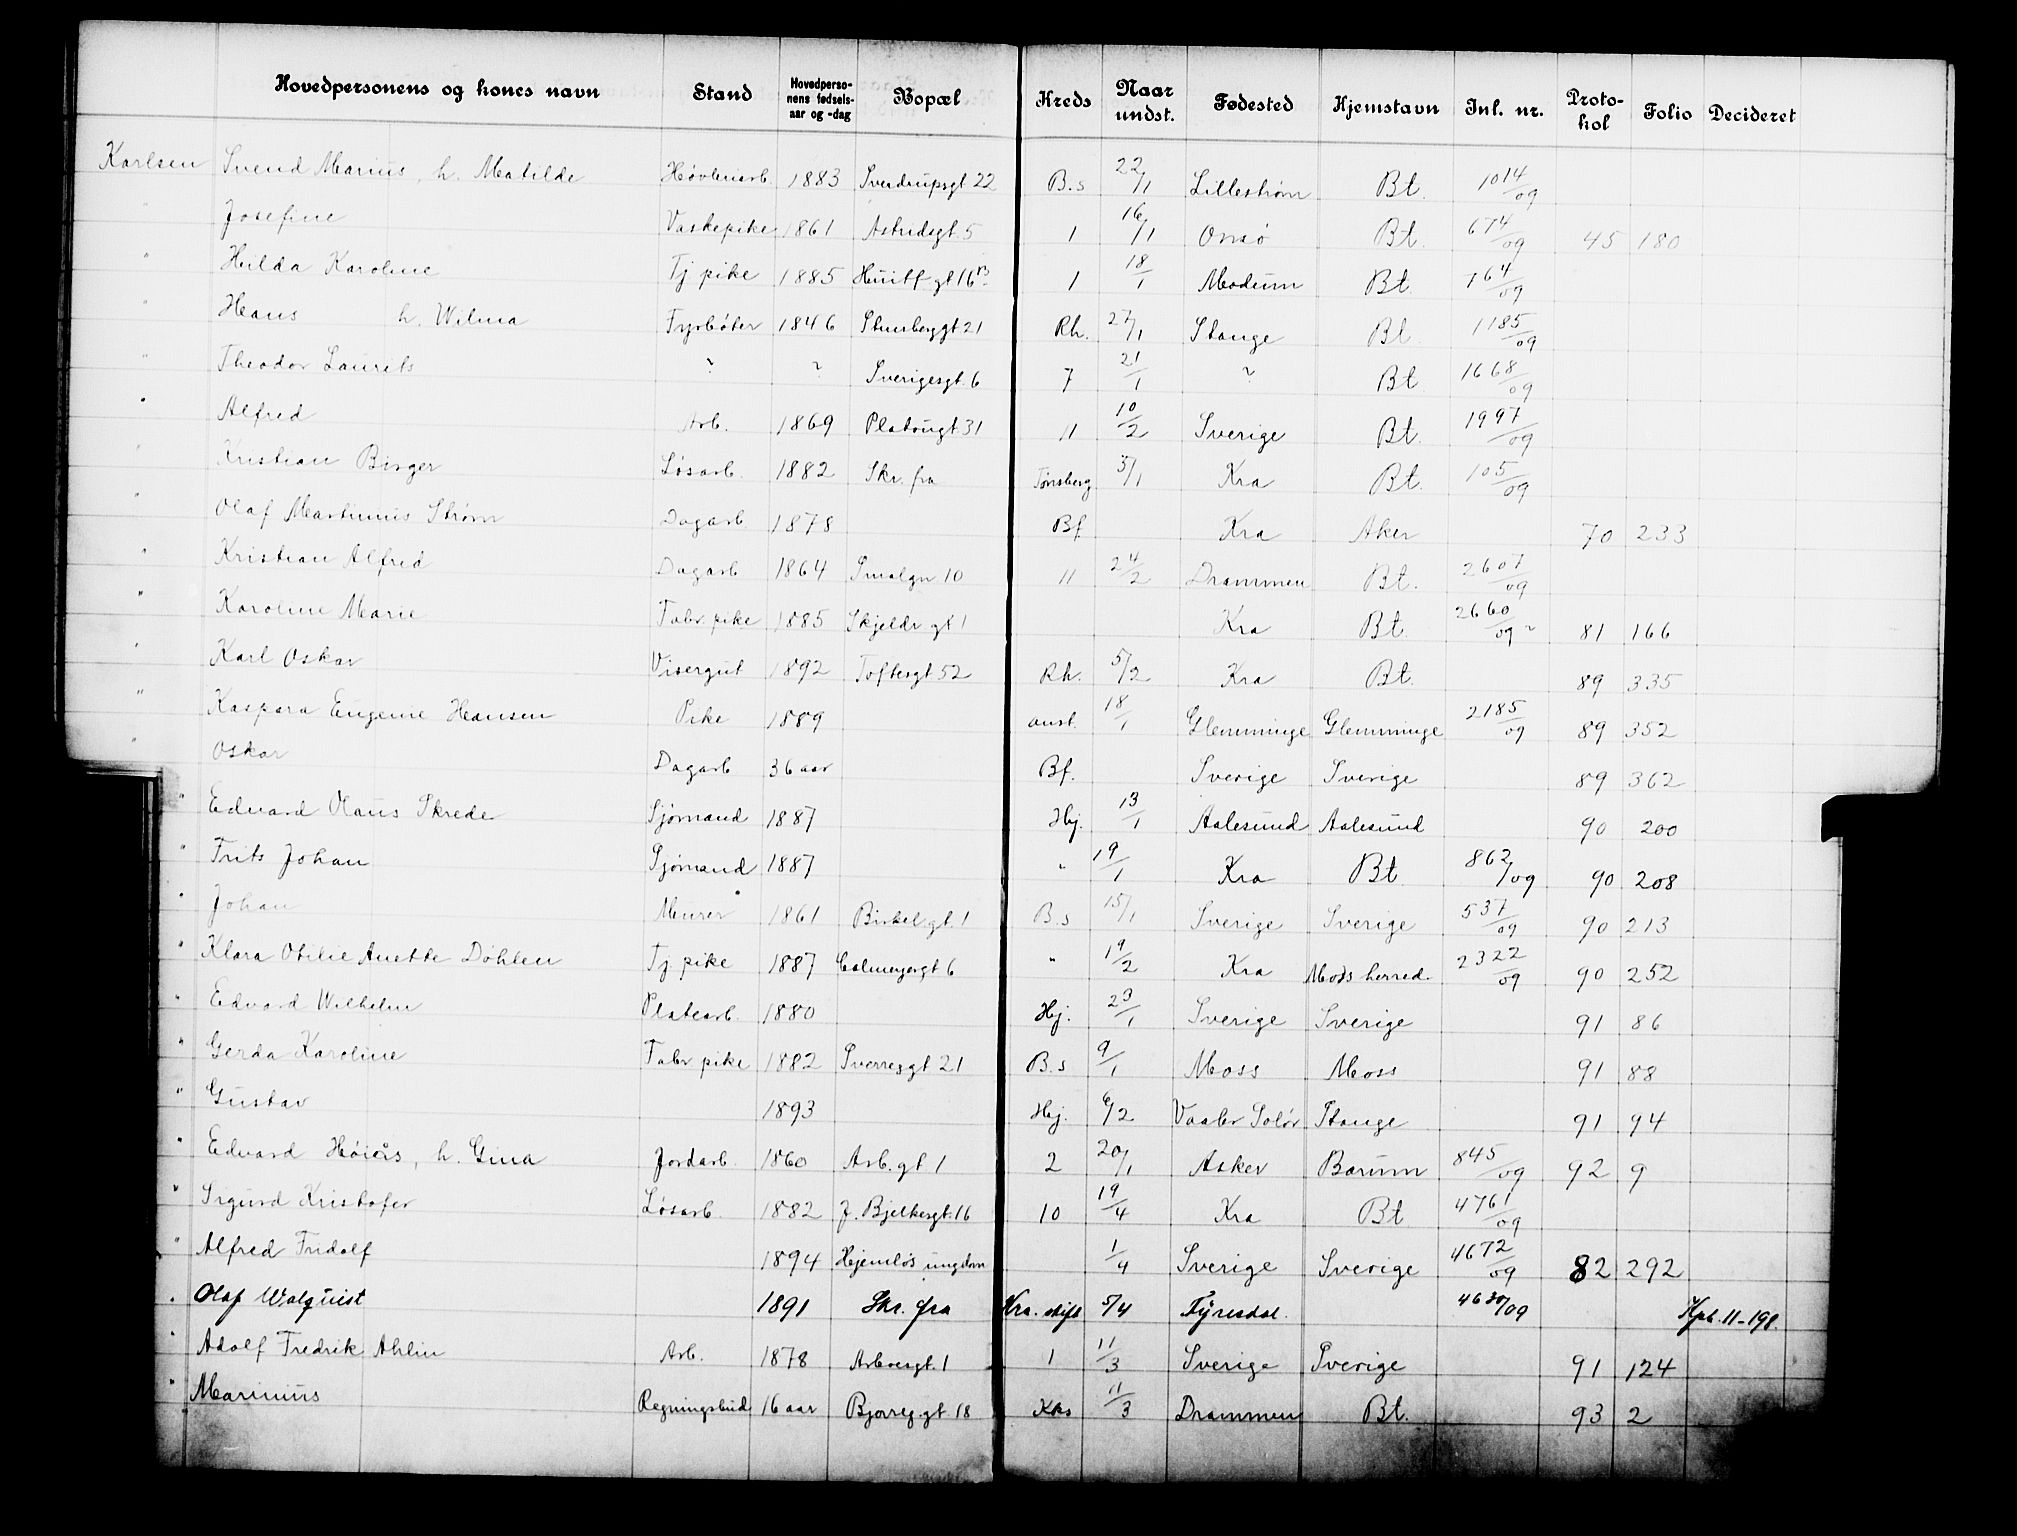 Hovedpersonens og kones navn Stand Hovedpersonens fødselsaar og -dag Bopæl Kreds Naar undst. Fødested Hjemstavn Inl. nr. Protokol Folio Decideret
Karlsen Svend Marius, h. Matilde Høvleriarb. 1883 Sverdrupsgt 22 B.s 22/1 Lillestrøm Bt. 1014/09
" Josefine Vaskepike 1861 Astridsgt. 5 1 16/1 Onsø Bt. 674/09 45 180
" Hilda Karoline Tj pike 1885 Huitf gt 16 B. 1 18/1 Modum Bt. 764/09
" Hans h. Wilma Fyrbøter 1846 Stensberggt 21 Rh. 27/1 Stange Bt. 1185/09
" Theodor Laurits ? ? Sverigesgt. 6 7 21/1 ? Bt. 1668/09
" Alfred Arb. 1869 Platougt. 31 11 10/2 Sverige Bt. 1997/09
" Kristian Birger Løsarb. 1882 Skr. fra Tønsberg 5/1 Kra Bt. 105/09
" Olaf Martinius Strøm Dagarb. 1878 Bf Kra Aker 70 233
" Kristian Alfred Dagarb 1864 Smalgn 10 11 24/2 Drammen Bt. 2607/09
" Karoline Marie Fabr. pike 1885 Skjeldr gt 1 Kra Bt. 2660/09 81 166
" Karl Oskar Visergut 1892 Toftesgt 52 Rh. 5/2 Kra Bt. 89 335
" Kaspara Eugenie Hansen Pike 1889 anst. 18/1 Glemminge Glemminge 2185/09 89 352
" Oskar Dagarb 36 aar Bf. Sverige Sverige 89 362
" Edvard Olaus Skrede Sjømand 1887 Hj. 13/1 Aalesund Aalesund 90 200
" Frits Johan Sjømand 1887 " 19/1 Kra Bt. 862/09 90 208
" Johan Murer 1861 Birkel. gt. 1 B.s 15/1 Sverige Sverige 537/09 90 213
" Klara Otilie Anette Døhlen Tj pike 1887 Calmeyergt 6 " 19/2 Kra Mods herred. 2322/09 90 252
" Edvard Wilhelm Platearb. 1880 Hj. 23/1 Sverige Sverige 91 86
" Gerda Karoline Fabr pike 1882 Sverresgt 21 B.s 9/1 Moss Moss 91 88
" Gustav 1893 Hj. 6/2 Vaaler Solør Stange 91 94
" Edvard Høiås, h. Gina Jordarb. 1860 Arb. gt 1 2 20/1 Asker Bærum 845/09 92 9
" Sigurd Kristofer Løsarb. 1882 J. Bjelkesgt. 16 10 19/4 Kra Bt 4761/09
" Alfred Fridolf 1894 Hjemløs ungdom 1/4 Sverige Sverige 4672/09 82 292
" Olaf Walquist 1891 Skr. fra Kra. stift 5/4 Fyresdal. 4630/09 Kpb. 11-198.
" Adolf Fredrik Ahlin Arb. 1878 Arboesgt. 1 1 11/3 Sverige Sverige 91 124
" Marinius Regningsbud 16 aar gt 18 11/3 Drammen Bt. 93 2